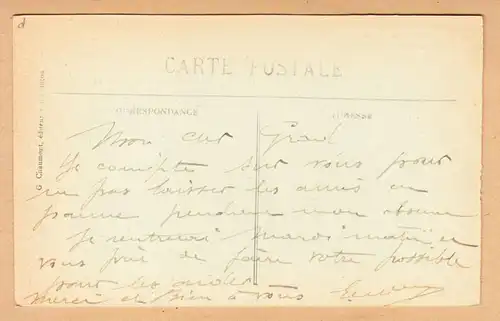 d
CARTE POSTALE
CORRESPONDANCE
ADRESSE
G. Claumont, éditeur
Mon cher
Je compte sur vous pour
ne pas laisser les amis en
panne pendant mon absence
Je rentrerai mardi matin et
vous prie de faire votre possible
pour les aider
merci et bien à vous